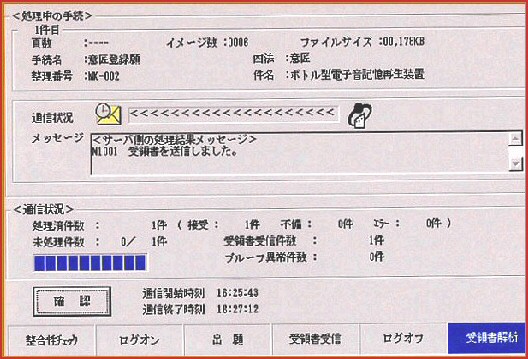 <処理中の手続>
1件目
頁数 :---- イメージ数 :0006 ファイルサイズ :00,178KB
手続名 :意匠登録願 四法 :意匠
整理番号 :MK-002 件名 :ボトル型電子音記憶再生装置
通信状況 <<<<<<<<<<<<<<<<<<
メッセージ <サーバ側の処理結果メッセージ>
N1001 受領書を送信しました。
<通信状況>
処理済件数 : 1件 ( 接受 : 1件 不備 : 0件 エラー : 0件 )
未処理件数 : 0/ 1件 受領書受信件数 : 1件
プルーフ異常件数 : 0件
確認
通信開始時刻 16:25:43
通信終了時刻 16:27:12
整合性チェック ログオン 出願 受領書受信 ログオフ 受領書解析